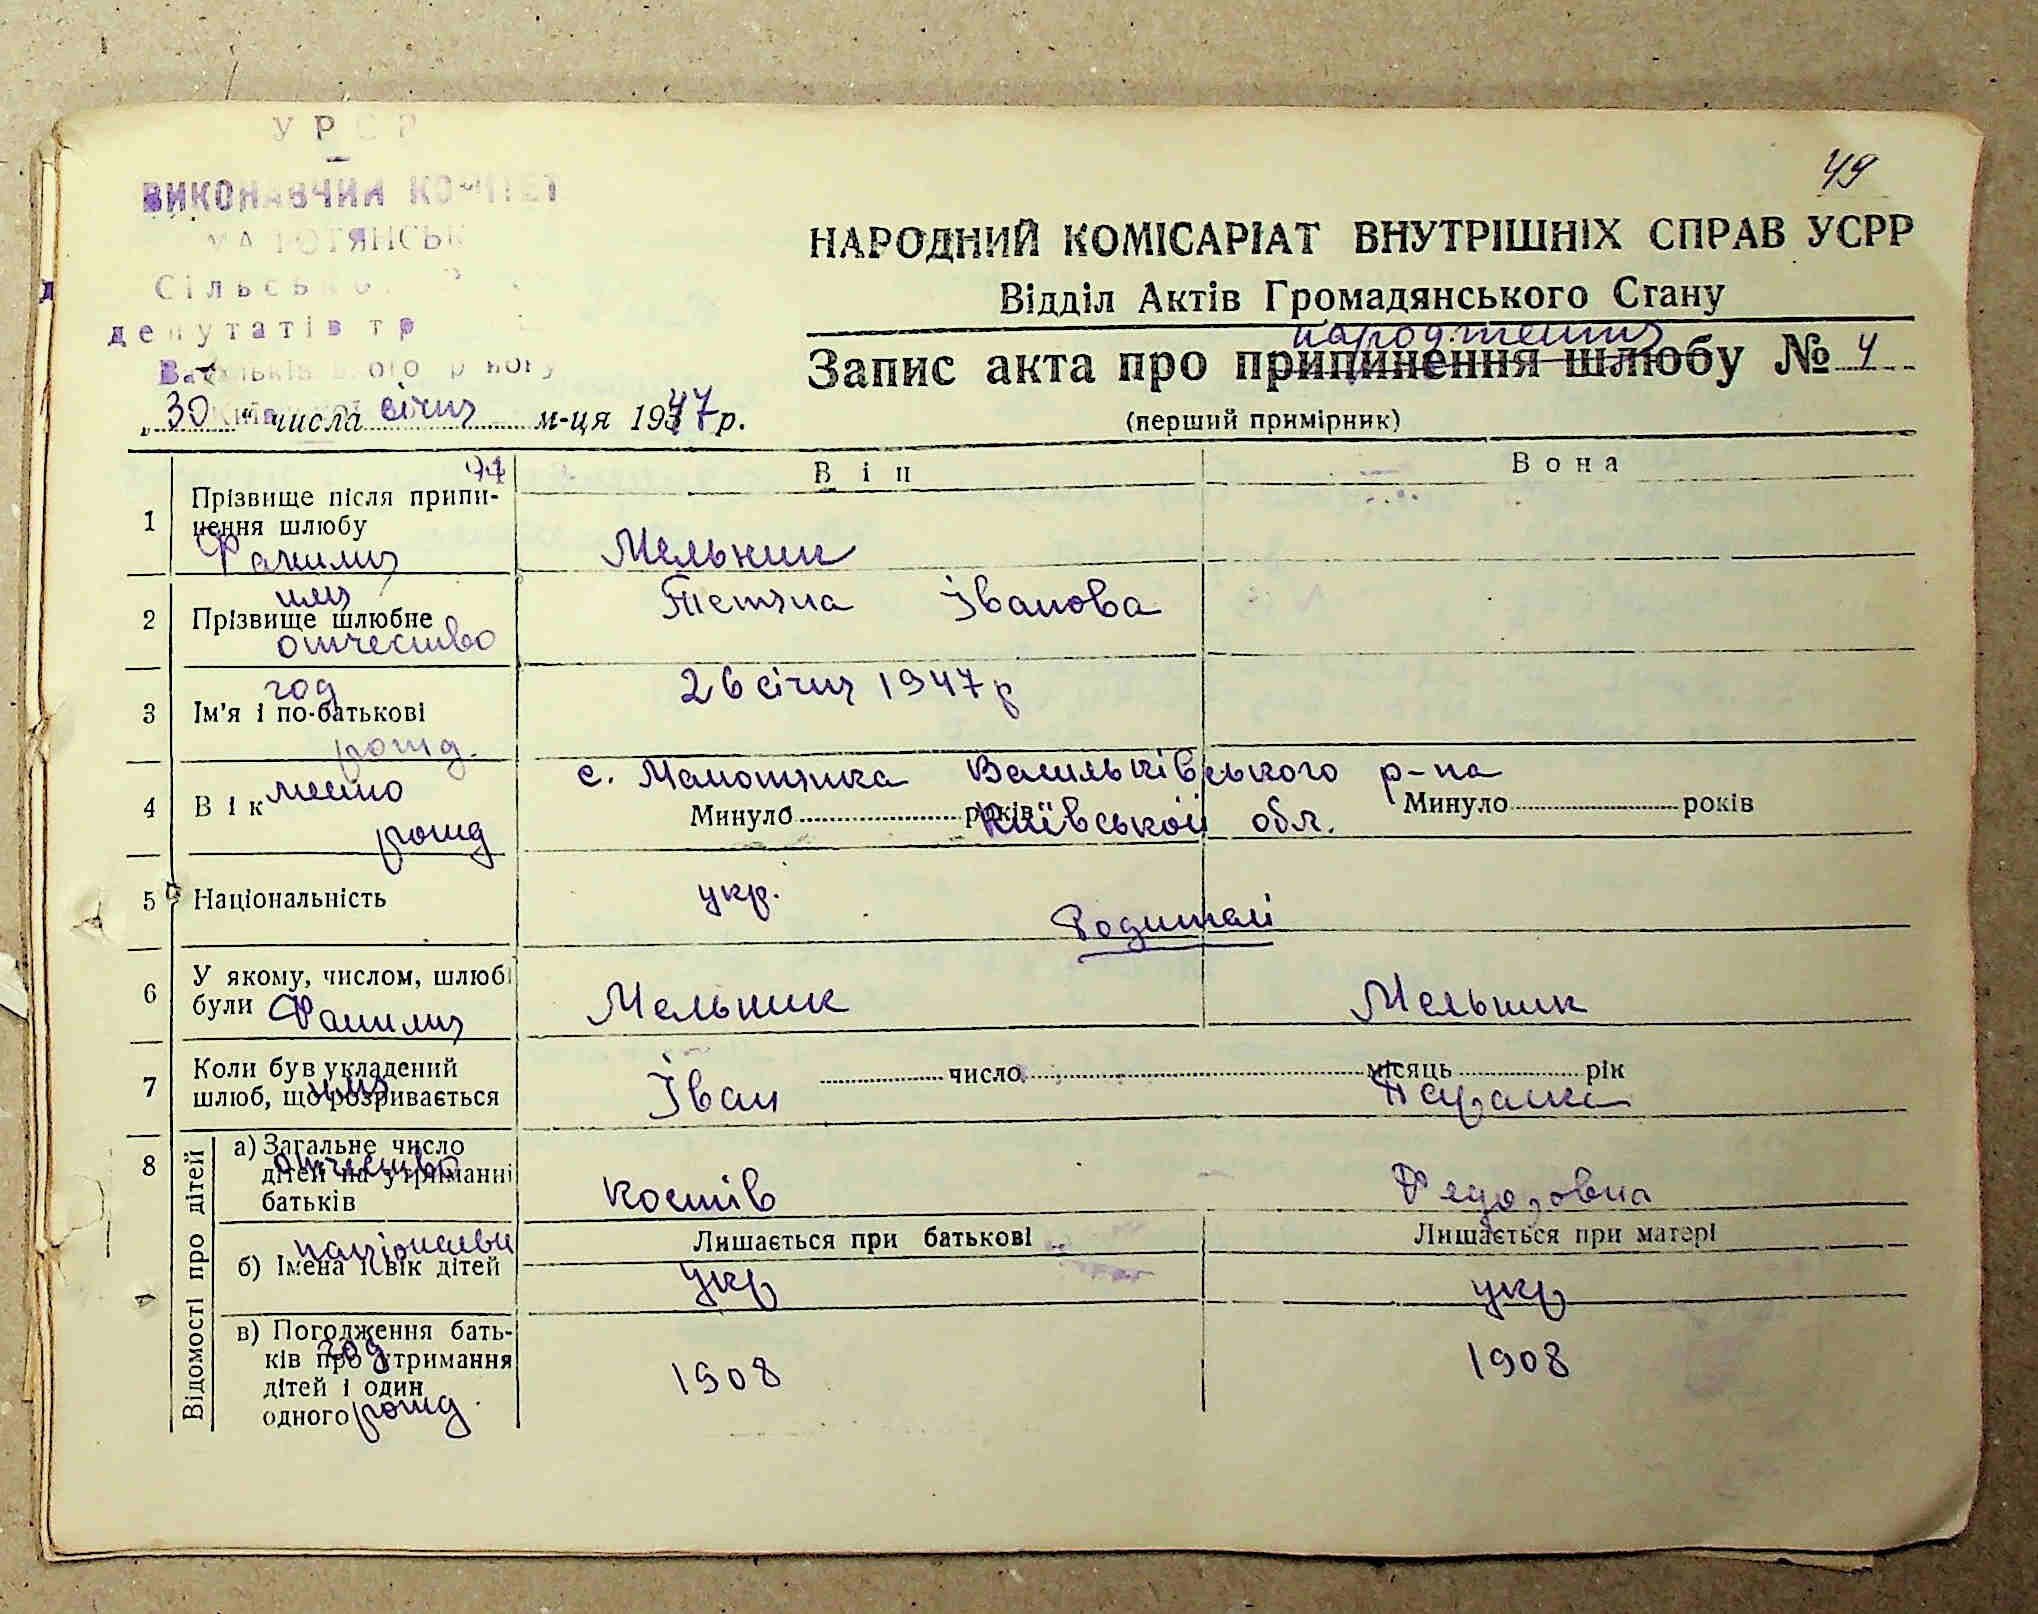 49
УРСР
ВИКОНАВЧИЙ КОМІТЕТ
НАРОДНИЙ КОМІСАРІАТ ВНУТРІШНІХ СПРАВ УСРР
Відділ Актів Громадянського Стану
народження
Запис акта про припинення шлюбу № 4
(перший примірник)
депутатів тр
„ 30 " числа січня м-ця 1947 р.
Він
Вона
1 Прізвище після припинення шлюбу
Фамилия
Мельник
имя
2 Прізвище шлюбне
отчество
Тетяна Іванова
год
3 Ім'я і по-батькові
рожд.
26 січня 1947 р
4 Вік место
рожд
с. Малютянка Васильківського р-на
Минуло років
Київської обл.
Минуло років
5 Національність
укр.
Родителі
6 У якому, числом, шлюбі були Фамилия
Мельник
Мельник
7 Коли був укладений шлюб, що розривається
имя
число місяць рік
Іван
Параска
8 Відомості про дітей
а) Загальне число дітей на утриманні батьків
отчество
Костів
Федоровна
Лишається при батькові
Лишається при матері
б) Імена і вік дітей
укр
укр
в) Погодження батьків про утримання дітей і один одного
год
рожд.
1908
1908